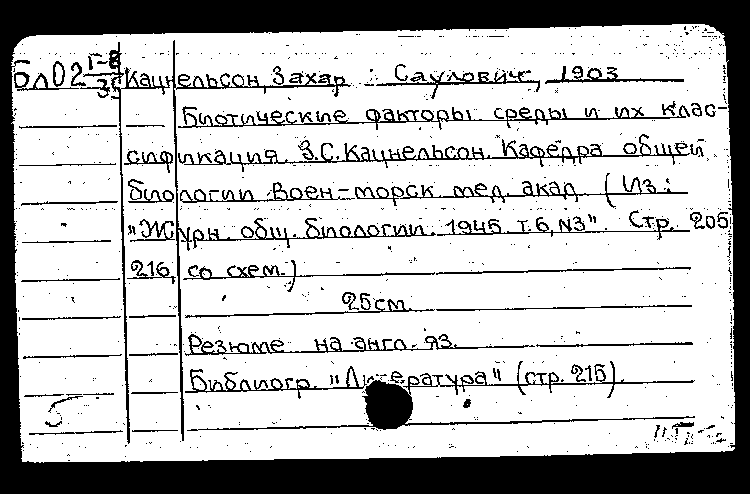 Бл02 1-8/35 Кацнельсон, Захар Саулович, 1903
Биотические факторы среды и их клас-
сификация. З.С. Кацнельсон. Кафедра общей
биологии Воен-морск мед. акад. (Из:
"Журн. общ. биологии. 1945 т. 6, N3". Стр. 205
216, со схем.)
25см.
Резюме на англ. яз.
Библиогр. "Литература" (стр. 215).
5